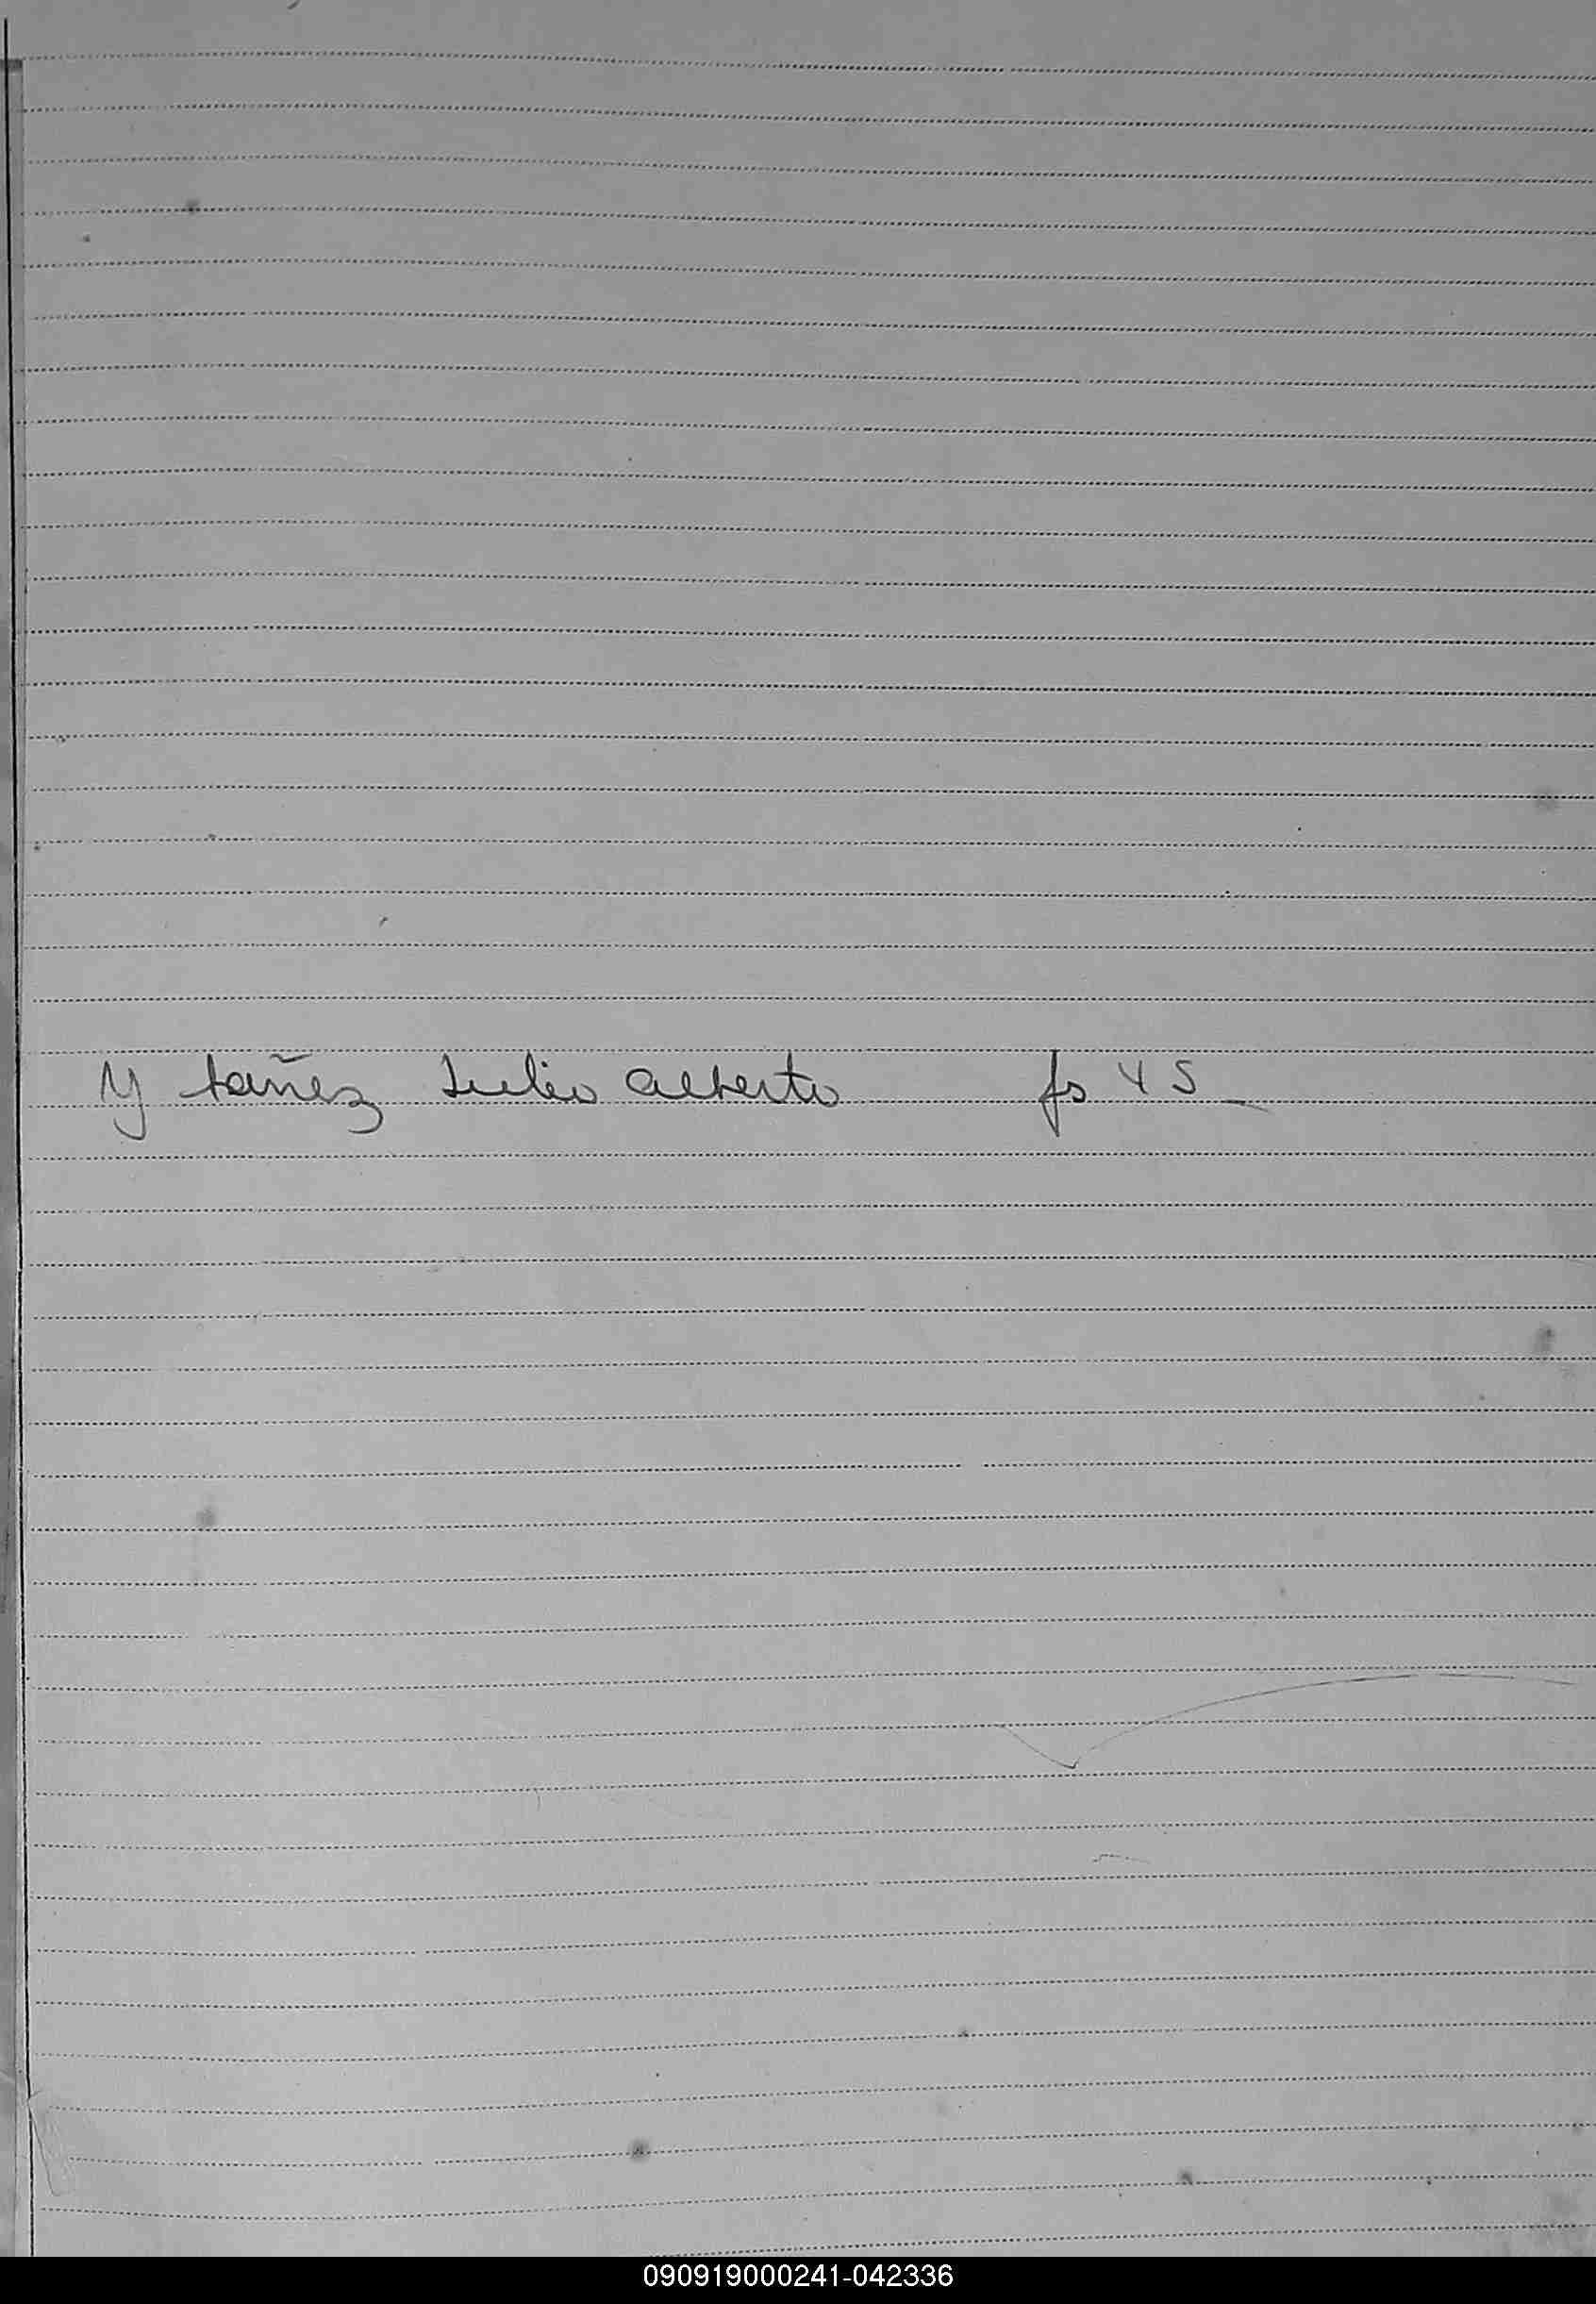 Y Yañez Julio Alberto fs 45_
090919000241-042336